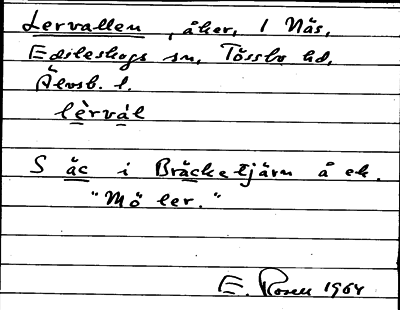 Lervallen, åker, 1 Näs,
Edsleskogs sn, Tössbo hd,
Älvsb. l.
lèrvál
S äc i Bräcketjärn å ek.
"Mö ler."
E. Rosen 1964